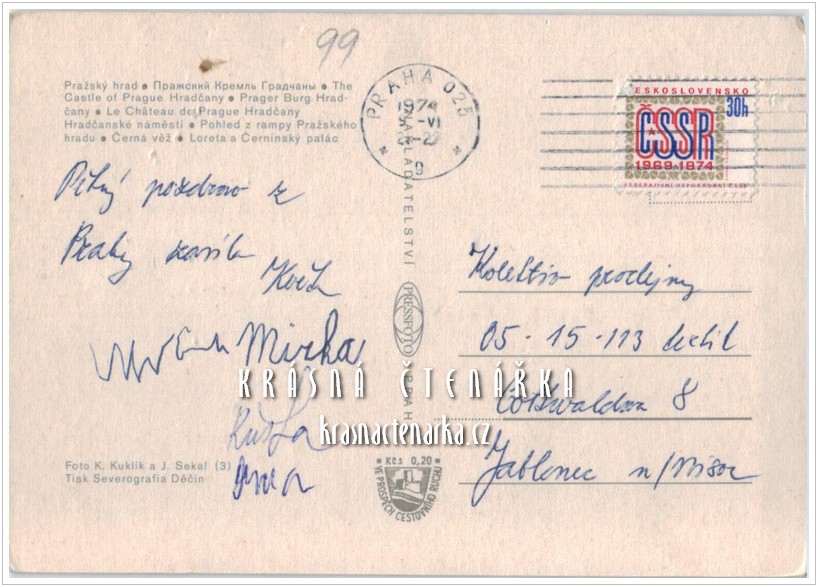 99
Pražský hrad • Пражский Кремль Градчаны • The
Castle of Prague Hradčany • Prager Burg Hrad-
čany • Le Château de Prague Hradčany
Hradčanské náměstí • Pohled z rampy Pražského
hradu • Černá věž • Loreta a Černínský palác
PRAHA 025
1974
-VI
9
ČESKOSLOVENSKO
30h
ČSSR
1969-1974
FEDERATIVNÍ USPOŘÁDÁNÍ ČSSR
Pěkný pozdrav z
Prahy
Květa
Mirka
Růža
NAKLADATELSTVÍ
PRESSFOTO
PRAHA
Kolektiv prodejny
05-15-113 textil
Gottwaldova 8
Jablonec n/Nisou
KRÁSNÁ ČTENÁŘKA
krasnactenarka.cz
Foto K. Kuklík a J. Sekal (3)
Tisk Severografia Děčín
Kčs 0,20
VE PROSPĚCH CESTOVNÍHO RUCHU